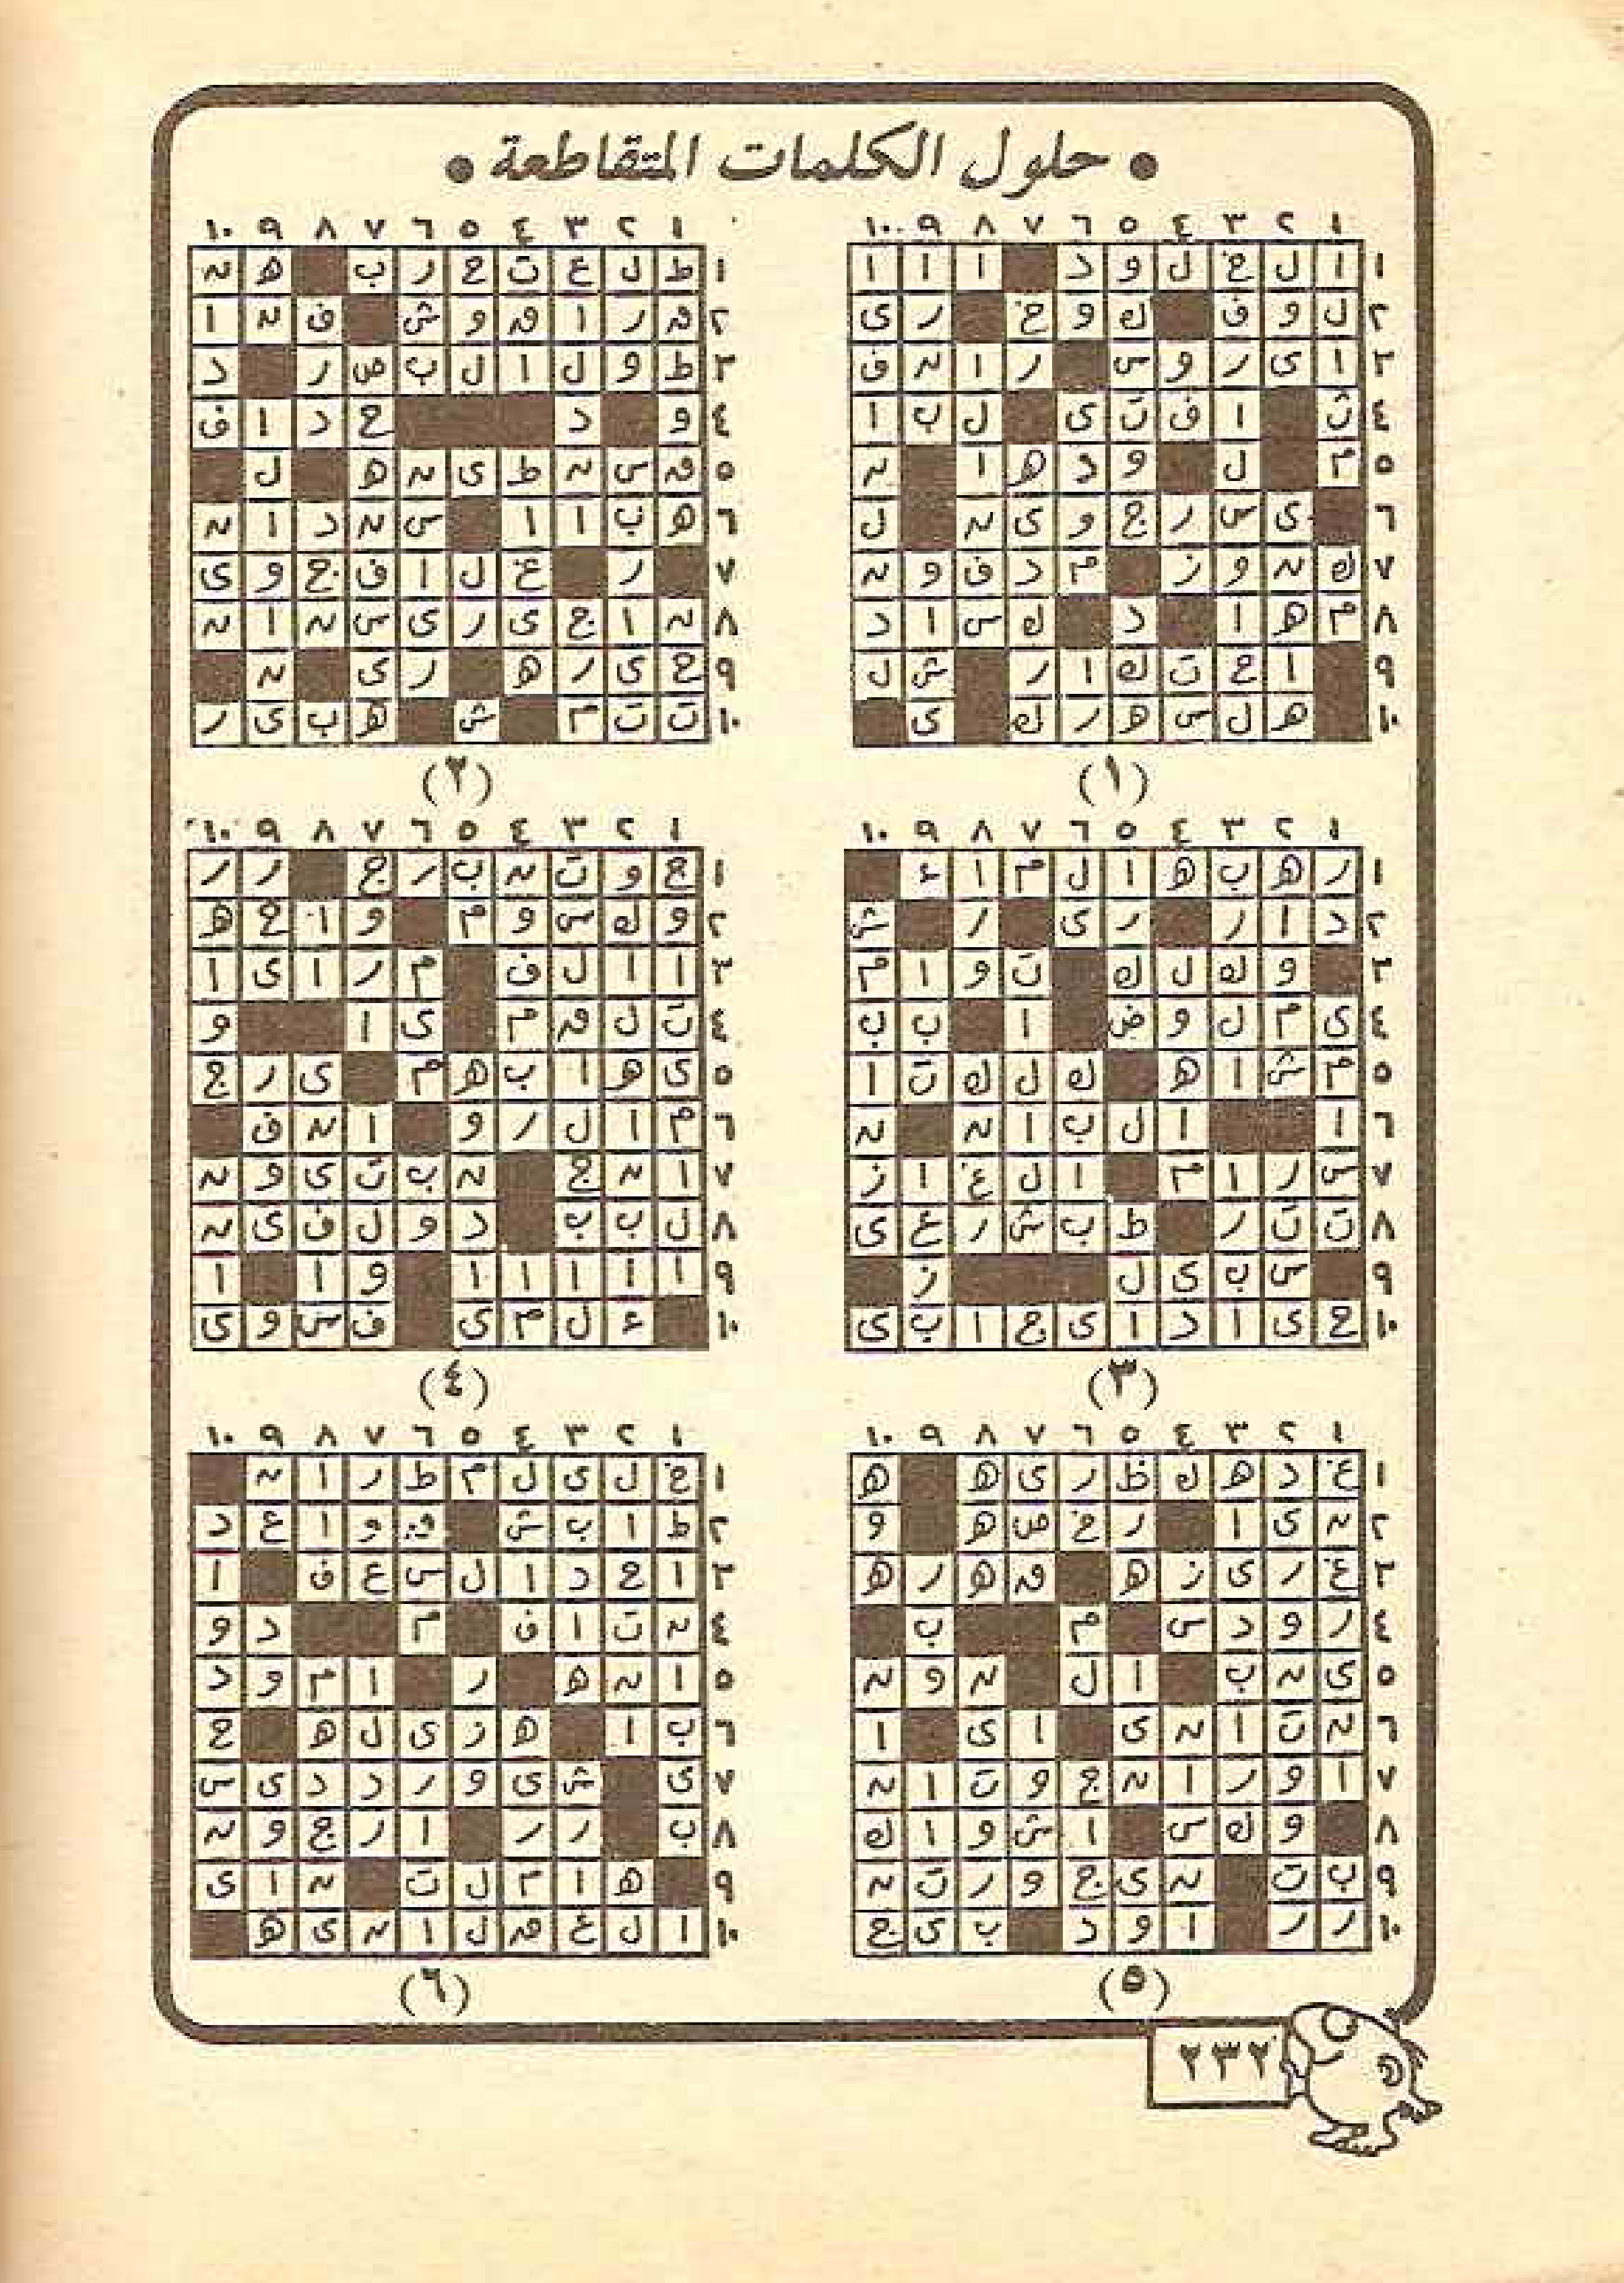 • حلول الكلمات المتقاطعة •
١ ٢ ٣ ٤ ٥ ٦ ٧ ٨ ٩ ١٠
١ ا ل خ ل و د ا ا ا
٢ ل و ف ك و خ ر ى
٣ ا ى ر و س ر ا ن ف
٤ ت ا ف ت ى ل ب ا
٥ م ل و د ه ا ن
٦ ى س ر ج و ى ن ل
٧ ك ن و ز م د ف و ن
٨ م ه ا د ك س ا د
٩ ا ح ت ك ا ر ش ل
١٠ ه ل س ه ر ك ى
(١)
١ ٢ ٣ ٤ ٥ ٦ ٧ ٨ ٩ ١٠
١ ط ل ع ت ح ر ب ه ن
٢ ق ر ا ق و ش ف ن ا
٣ ط و ل ا ل ب ص ر د
٤ و د ح د ا ق
٥ ق س ن ط ى ن ه ل
٦ ه ب ا ا س ن د ا ن
٧ ر غ ل ا ف ج و ى
٨ ن ا ج ى ر ى س ن ا ن
٩ ح ى ر ه ر ى ن
١٠ ت ت م ش ه ب ى ر
(٢)
١ ٢ ٣ ٤ ٥ ٦ ٧ ٨ ٩ ١٠
١ ر ه ب ه ا ل م ا ء
٢ د ا ر ر ى ر ش
٣ و ك ل ك ت و ا م
٤ ى م ل و ض ا ب ب
٥ م ش ا ه ك ل ك ت ا
٦ ا ا ل ب ا ن ن
٧ س ر ا م ا ل غ ا ز
٨ ت ت ر ط ب ش ر ع ى
٩ س ب ى ل ز
١٠ ح ى ا د ا ى ج ا ب ى
(٣)
١ ٢ ٣ ٤ ٥ ٦ ٧ ٨ ٩ ١٠
١ ج و ت ن ب ر ج ر ر
٢ و ك س و م و ا ح ه
٣ ا ا ل ف م ر ا ى ا
٤ ت ل ق م ى ا و
٥ ى ه ا ب ه م ى ر ج
٦ م ا ل ر و ا ن ف
٧ ا ن ج ن ب ت ى و ن
٨ ل ب ب د و ل ف ى ن
٩ ا ا ا ا ا و ا ا
١٠ ء ل م ى ف س و ى
(٤)
١ ٢ ٣ ٤ ٥ ٦ ٧ ٨ ٩ ١٠
١ غ د ه ك ظ ر ى ه ه
٢ ن ى ا ر خ ص ه و
٣ غ ر ى ز ه ق ه ر ه
٤ ر و د س م ب
٥ ى ن ب ا ل ن و ن
٦ ن ت ا ن ى ا ى ا
٧ ا و ر ا ن ج و ت ا ن
٨ و ك س ا ش و ا ك
٩ ب ت ن ى ج و ر ت ن
١٠ ر ر ا و د ب ى ج
(٥)
١ ٢ ٣ ٤ ٥ ٦ ٧ ٨ ٩ ١٠
١ خ ل ى ل م ط ر ا ن
٢ ط ا ب ش ق و ا ع د
٣ ا ح د ا ل س ع ف ا
٤ ن ت ا ف م د و
٥ ا ن ه ر ا م و د
٦ ب ا ه ز ى ل ه ج
٧ ى ش ى و ر د د ى س
٨ ب ر ر ا ر ج و ن
٩ ه ا م ل ت ن ا ى
١٠ ا ل ع ق ل ا ن ى ه
(٦)
٢٣٢